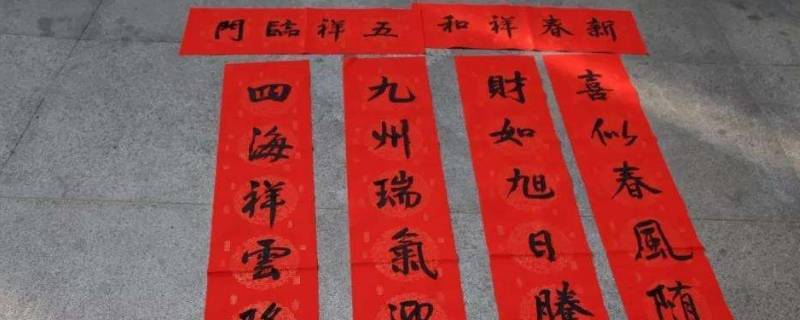 新春祥和
五祥臨門
喜似春風随
財如旭日騰
九州瑞氣迎
四海祥雲